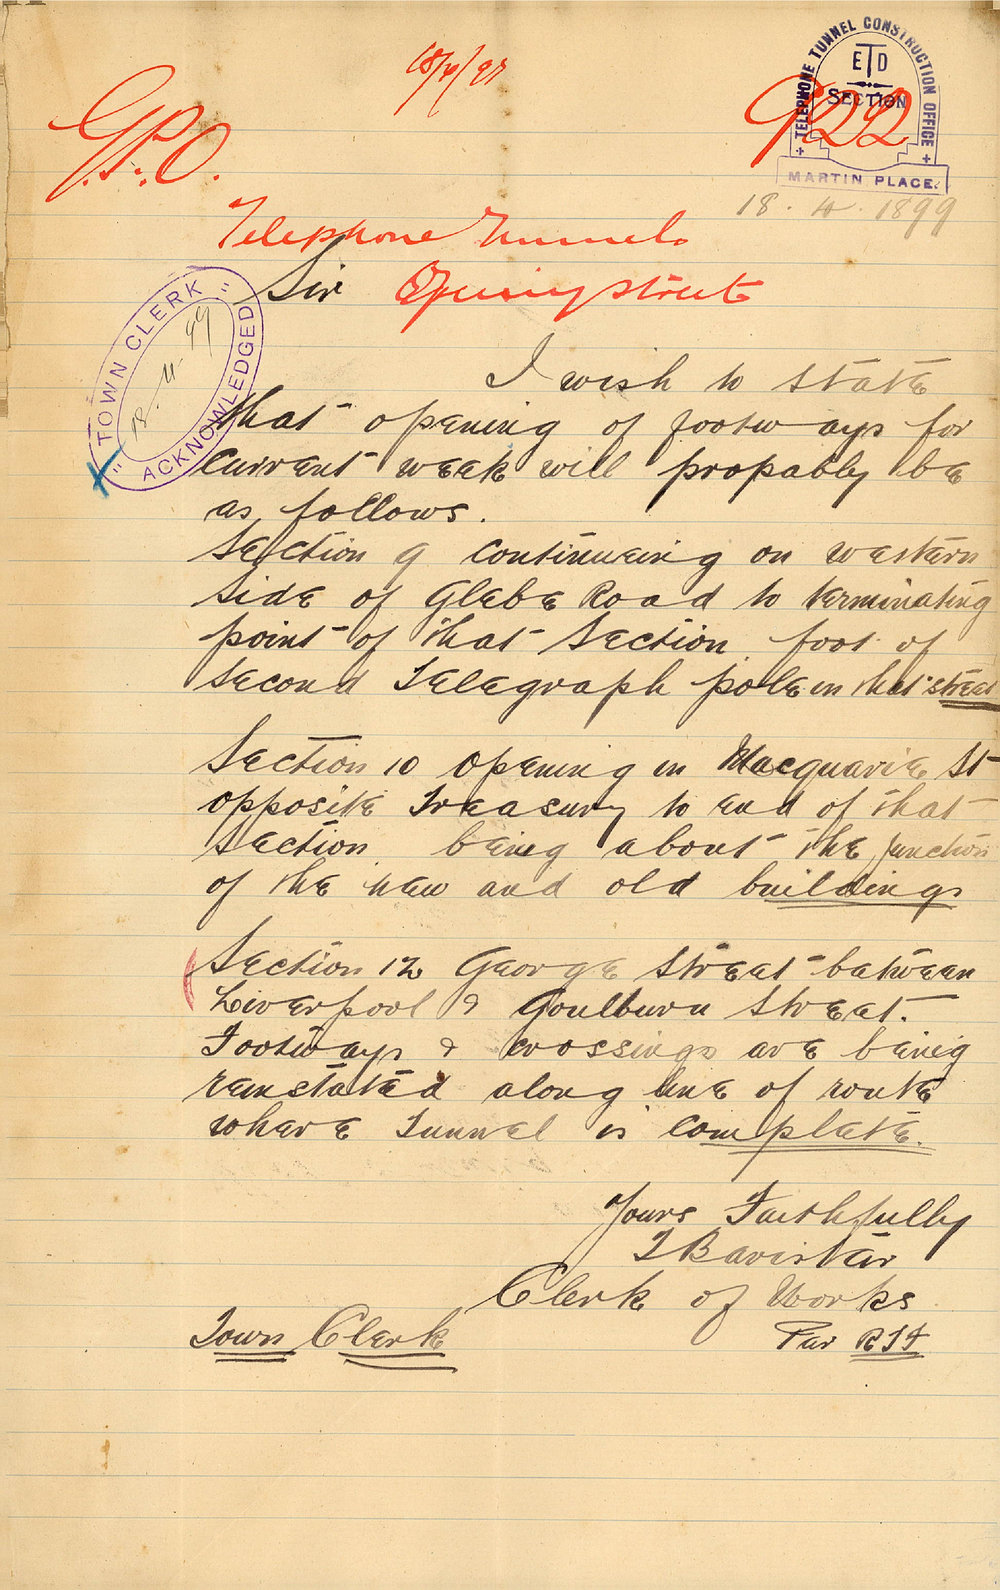 18/4/99
G.P.O.
922
TELEPHONE TUNNEL CONSTRUCTION OFFICE
ETD
SECTION
MARTIN PLACE.
18. 4. 1899
Telephone Tunnels
Sir Opening streets
"TOWN CLERK"
18. 4. 99
ACKNOWLEDGED
I wish to state
that opening of footways for
current week will propably be
as follows.
Section 9 continueing on western
side of Glebe Road to terminating
point of that Section. foot of
second Telegraph pole in that street
Section 10 opening in Macquarie St
opposite Treasury to end of that
section. being about the junction
of the new and old buildings
Section 12 George Street between
Liverpool & Goulburn Street.
Footways & crossings are being
reinstated along line of route
where Tunnel is complete.
Yours Faithfully
T Bavister
Clerk of Works
Per RTF
Town Clerk